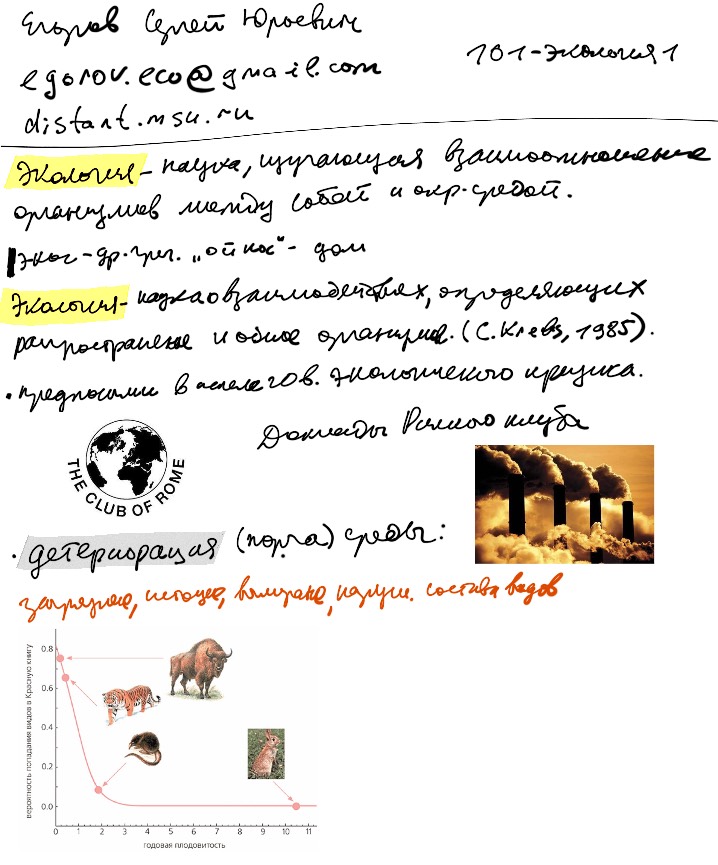 Егоров Сергей Юрьевич
101-Экология 1
egorov.eco@gmail.com
distant.msu.ru
Экология - наука, изучающая взаимоотношение
организмов между собой и окр. средой.
Экос - др. греч. „ойкос" - дом
Экология - наука о взаимодействиях, определяющих
распространение и обилие организмов. (C. Krebs, 1985).
• предпосылки в начале 20 в. экологического кризиса.
Доклады Римского клуба
THE CLUB OF ROME
• детериорация (порча) среды:
загрязнение, истощение, вымирание, наруш. состава видов
вероятность попадания видов в Красную книгу
0.8
0.6
0.4
0.2
0.0
0 1 2 3 4 5 6 7 8 9 10 11
годовая плодовитость